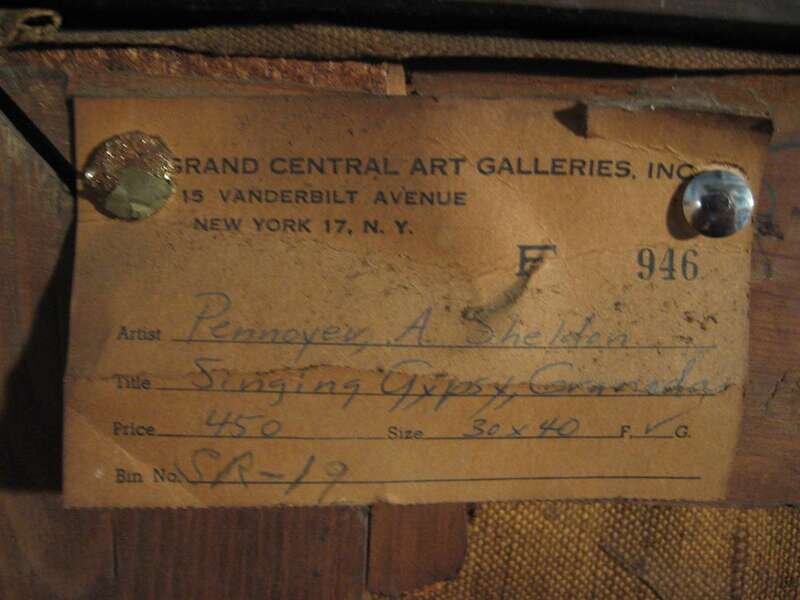 GRAND CENTRAL ART GALLERIES, INC.
15 VANDERBILT AVENUE
NEW YORK 17, N. Y.
F 946
Artist Pennoyer, A. Sheldon
Title Singing Gypsy, Granada
Price 450 Size 30 x 40 F. ✓ G.
Bin No. SR-19